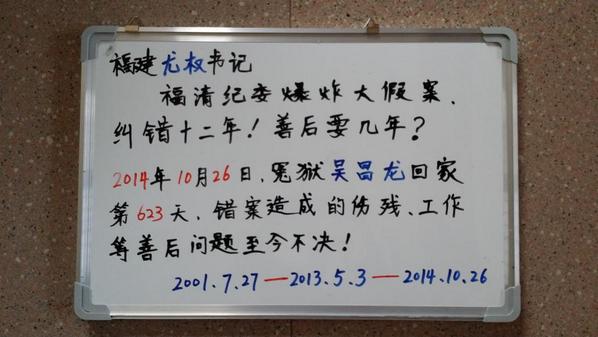 福建尤权书记
福清纪委爆炸大假案、
纠错十二年！善后要几年？
2014年10月26日、冤狱吴昌龙回家
第623天、错案造成的伤残、工作
等善后问题至今不决！
2001.7.27—2013.5.3—2014.10.26